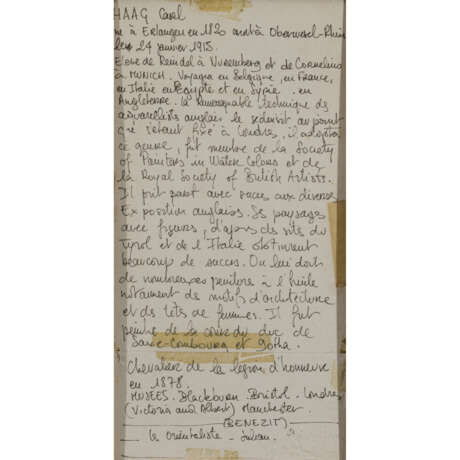 HAAG Carl
né à Erlangen en 1820 mort à Oberwesel-Rhin
le 24 janvier 1915.
Élève de Reindel à Nuremberg et de Cornelius
à MUNICH. Voyagea en Belgique, en France,
en Italie en Egypte et en Syrie. en
Angleterre. la remarquable technique des
aquarellistes anglais le séduisit au point
que s'étant fixé à Londres, il adopta
ce genre, fut membre de la Society
of Painters in Water Colors et de
la Royal Society of British Artists.
Il prit part avec succès aux diverses
Exposition anglaises. Ses paysages
avec figures, d'après des sites du
Tyrol et de l'Italie obtinrent
beaucoup de succès. On lui doit
de nombreuses peinture à l'huile
notamment des motifs d'architecture
et des têtes de femmes. Il fut
peintre de la cour du duc de
Saxe-Combourg et Gotha.
Chevalier de la legion d'honneur
en 1878.
MUSEES. Blackburn. Bristol. Londres
(Victoria and Albert) Manchester.
(BENEZIT)
le Orientaliste -